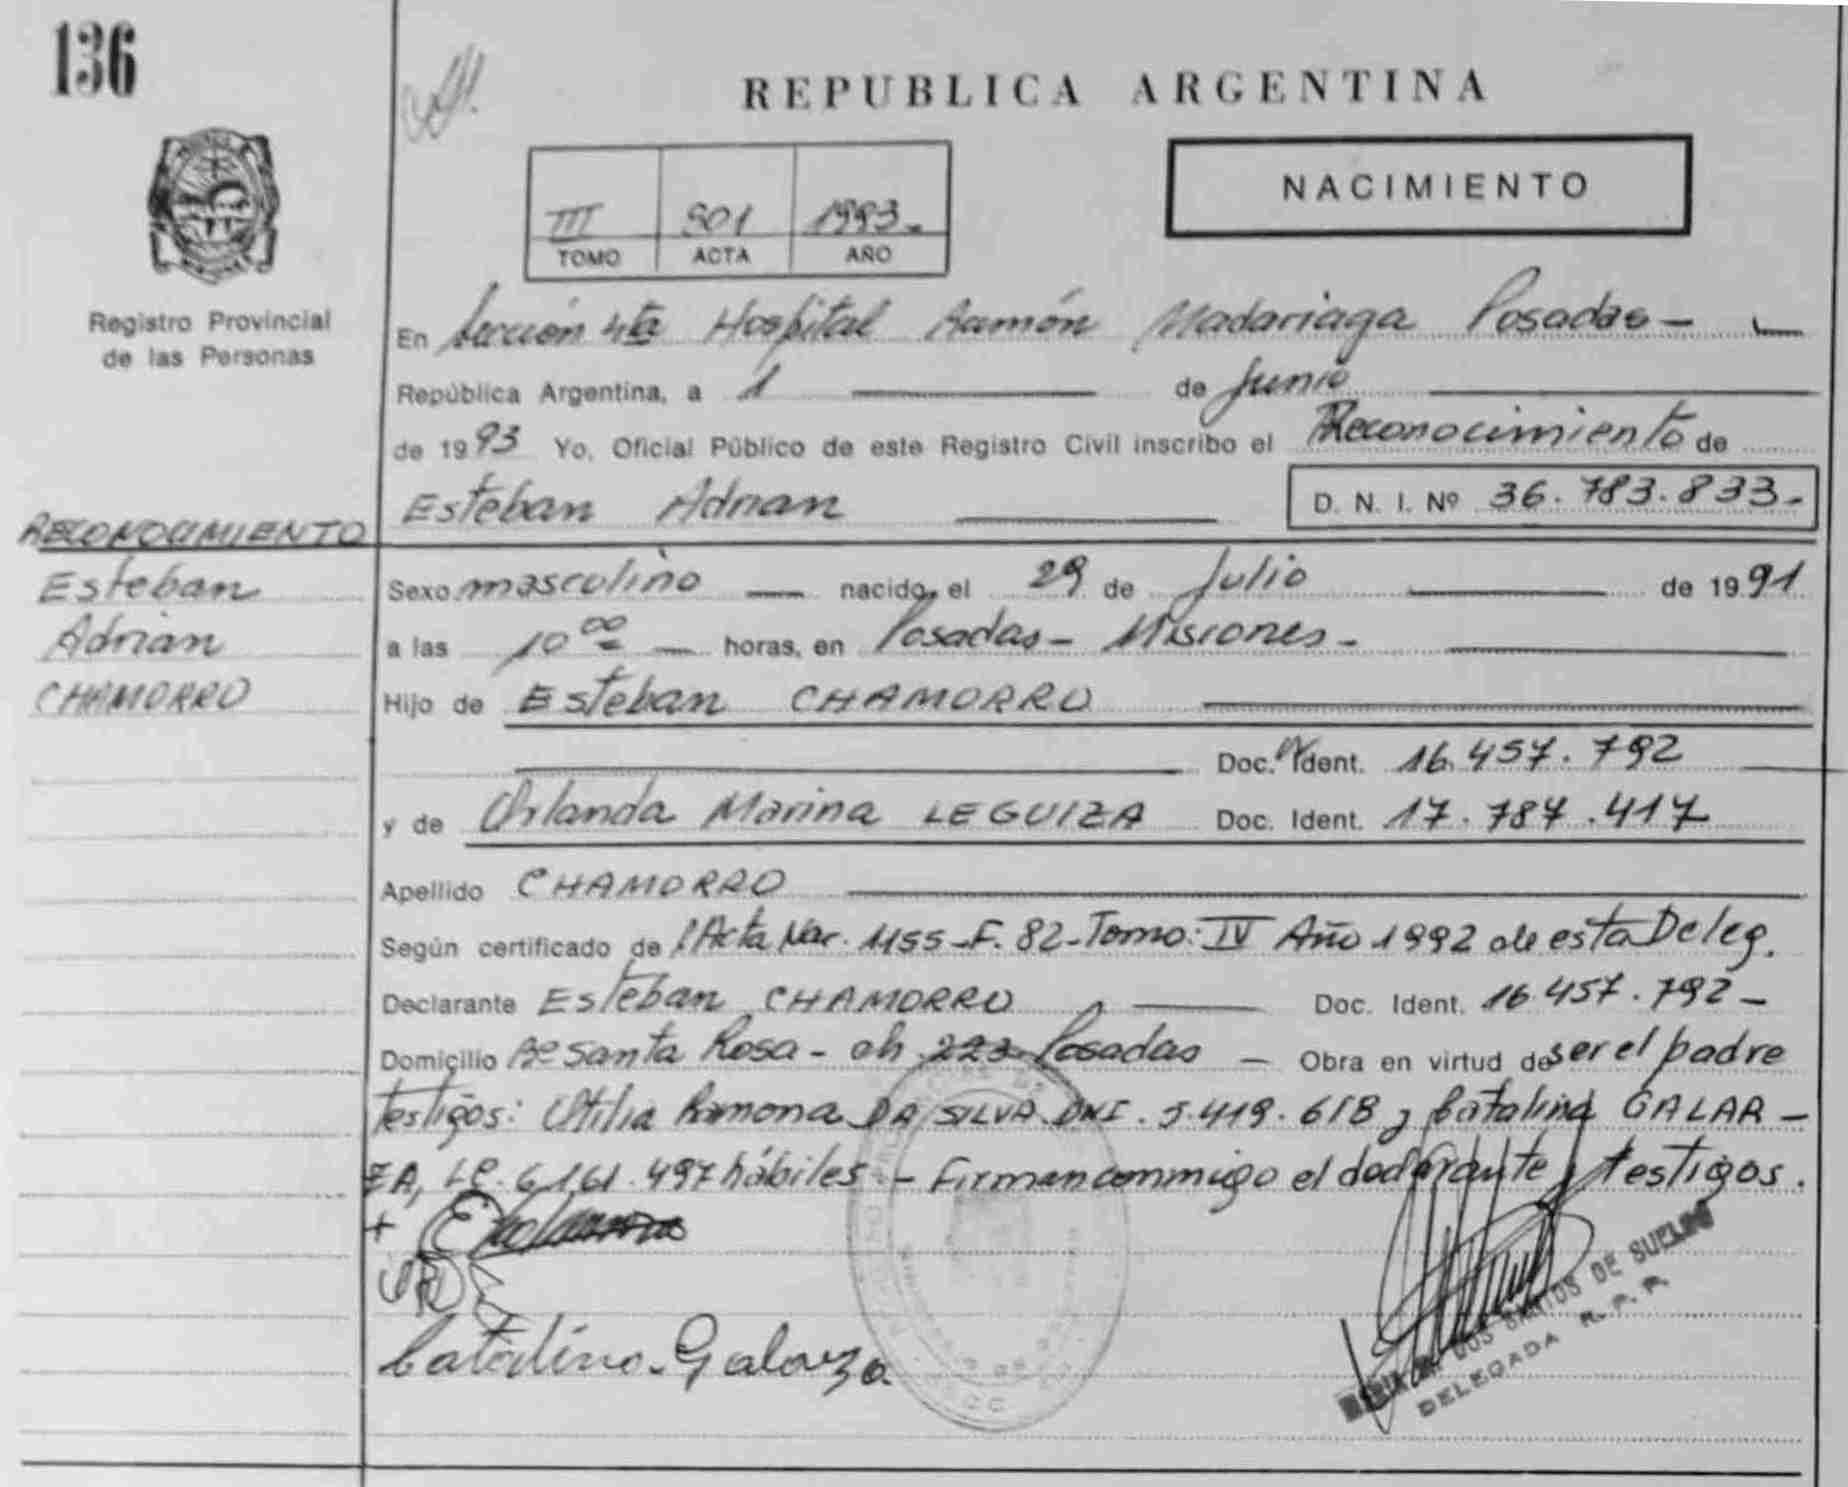 136
REPUBLICA ARGENTINA
NACIMIENTO
III 901 1993-
TOMO ACTA AÑO
Registro Provincial
de las Personas
En Sección 4ta Hospital Ramón Madariaga Posadas -
República Argentina, a 1 de Junio
de 1993 Yo, Oficial Público de este Registro Civil inscribo el Reconocimiento de
Esteban Adrian D. N. I. Nº 36.783.833-
RECONOCIMIENTO
Esteban
Adrian
CHAMORRO
Sexo masculino nacido, el 29 de Julio de 1991
a las 10 00 horas, en Posadas - Misiones -
Hijo de Esteban CHAMORRO
Doc. Ident. 16.457.792
y de Orlanda Marina LEGUIZA Doc. Ident. 17.787.417
Apellido CHAMORRO
Según certificado de Acta Nac. 1155-F. 82-Tomo: IV Año 1992 de esta Deleg.
Declarante Esteban CHAMORRO Doc. Ident. 16.457.792-
Domicilio Bº Santa Rosa - ch. 223 Posadas - Obra en virtud de ser el padre
Testigos: Otilia Ramona DA SILVA DNI. 5.419.618 y Catalina GALAR-
ZA, LC. 6.161.497 hábiles. - Firman conmigo el declarante y testigos.
Catalina Galarza
DOS SANTOS DE
DELEGADA R. P. P.